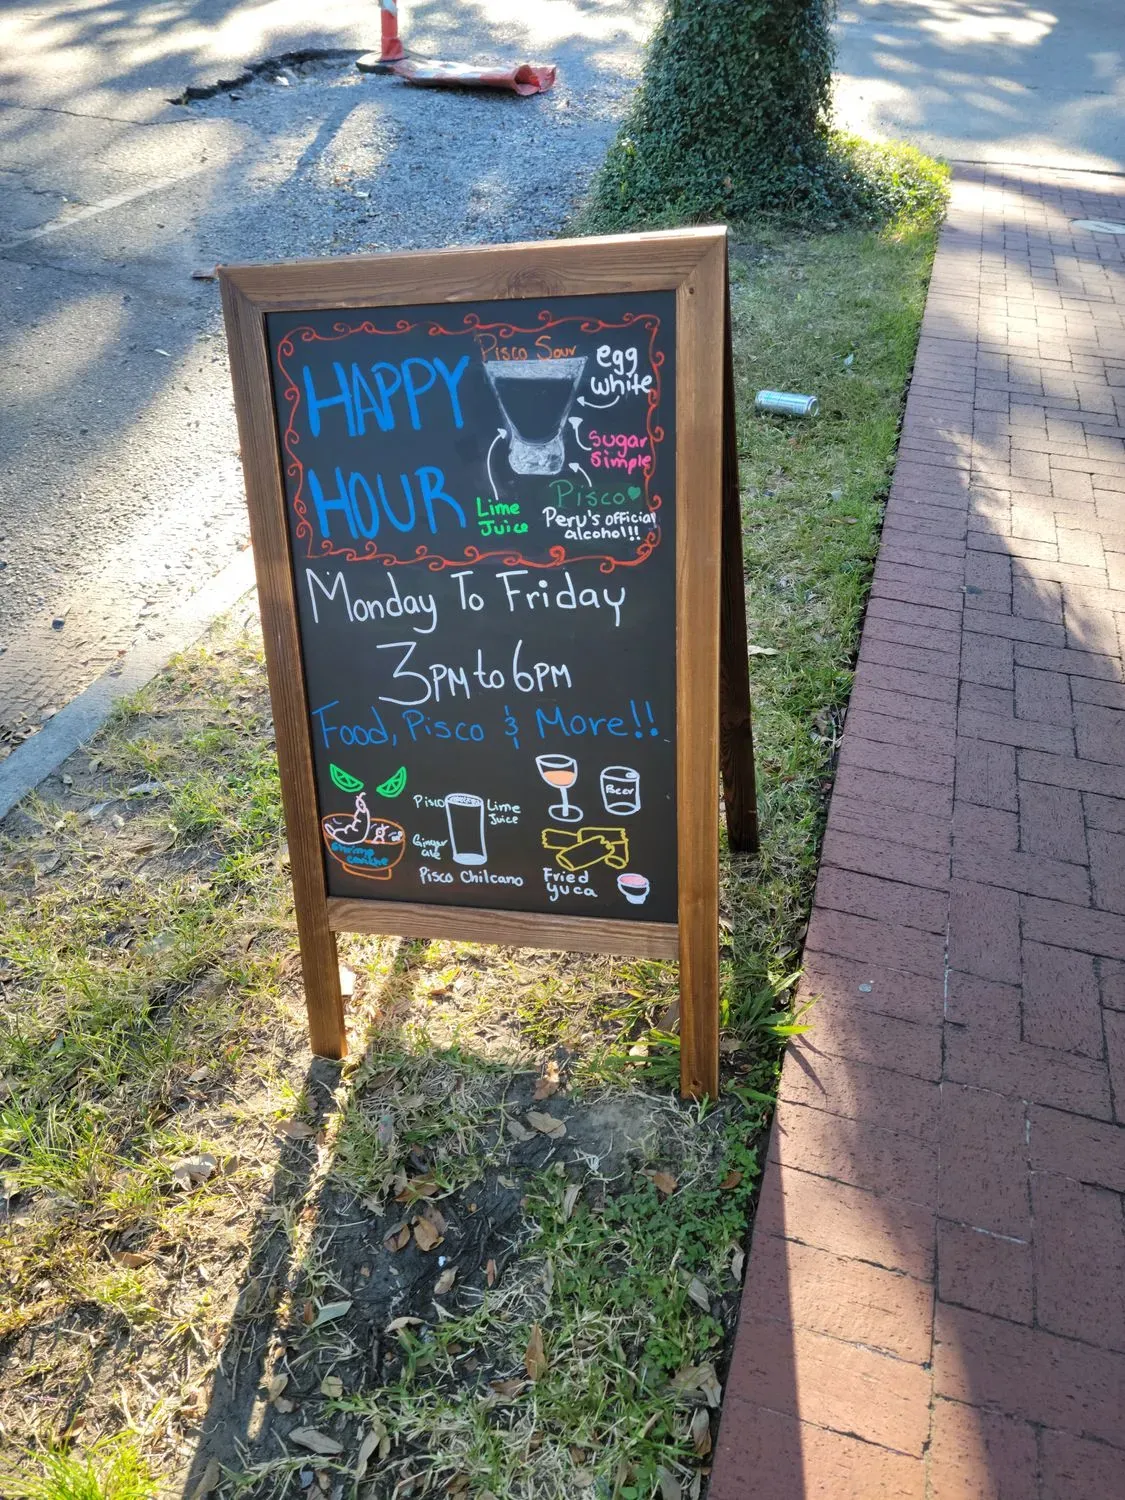 HAPPY
HOUR
Pisco Sour
egg
white
Sugar
Simple
Lime
Juice
Pisco
Peru's official
alcohol!!
Monday To Friday
3PM to 6PM
Food, Pisco & More!!
Shrimp
ceviche
Pisco
Lime
Juice
Ginger
ale
Pisco Chilcano
Beer
Fried
yuca